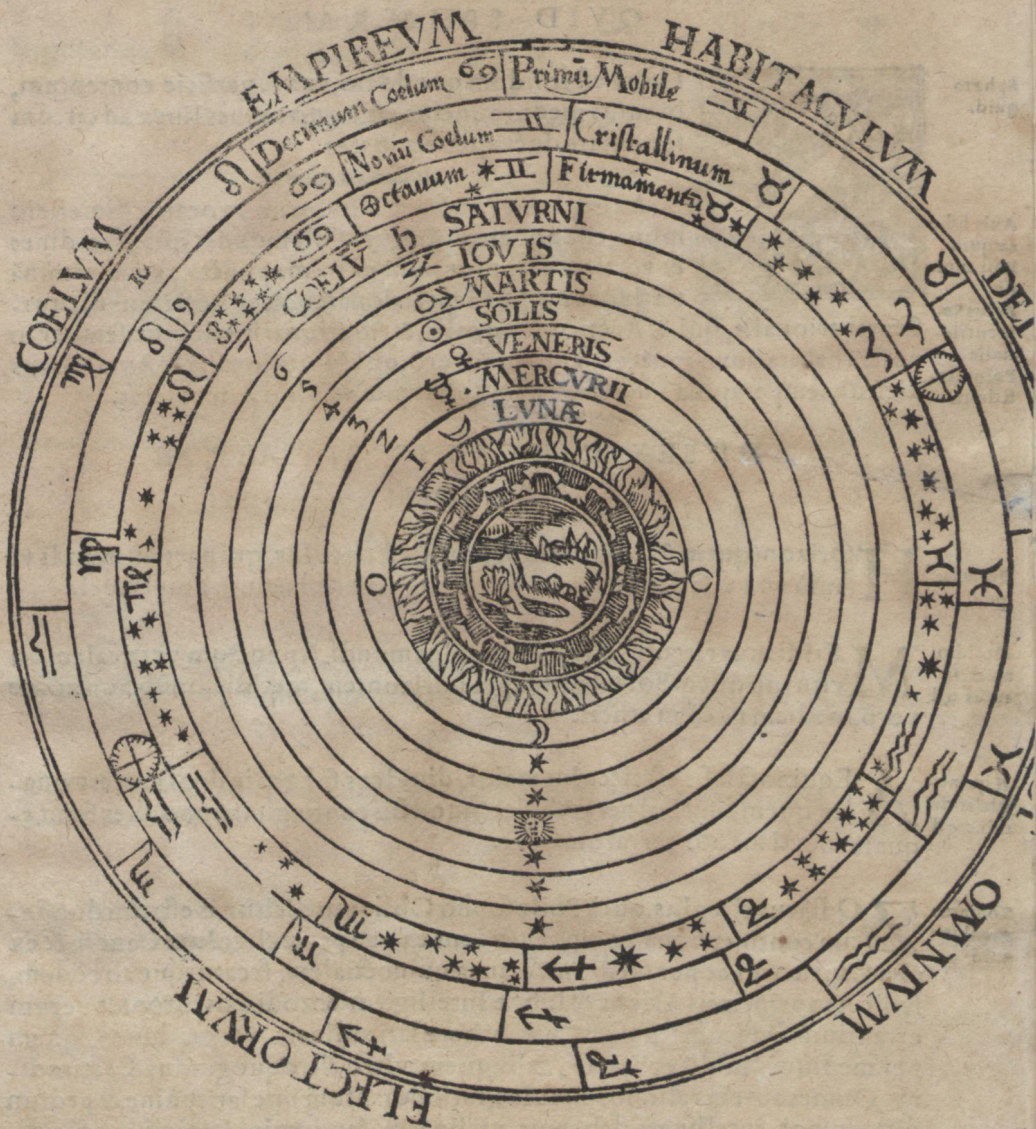 COELVM EMPIREVM HABITACVLVM DEI
OMNIVM ELECTORVM
Decimum Coelum Primũ Mobile
Nonũ Coelum Cristallinum
Octauum Firmamentũ
COELṼ SATVRNI
IOVIS
MARTIS
SOLIS
VENERIS
MERCVRII
LVNÆ
10
9
8
7
6
5
4
3
2
1